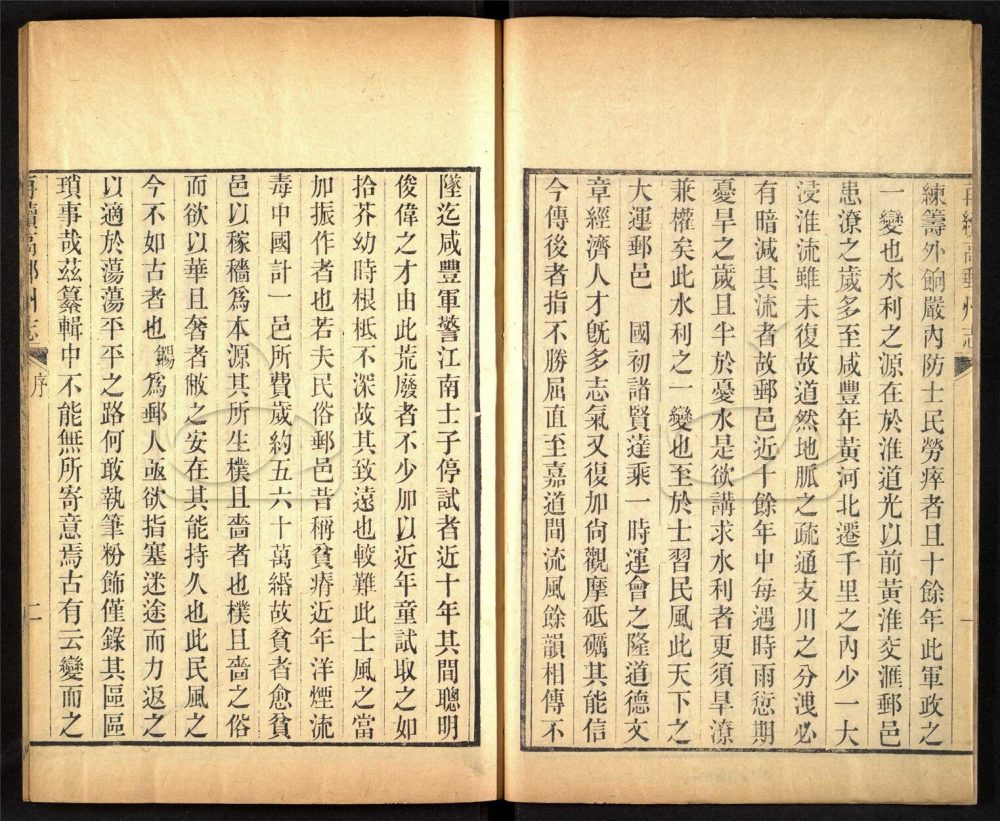 再續高郵州志
練籌外餉嚴內防士民勞瘁者且十餘年此軍政之
一變也水利之源在於淮道光以前黃淮交滙郵邑
患潦之歲多至咸豐年黃河北遷千里之內少一大
浸淮流雖未復故道然地脈之疏通支川之分洩必
有暗減其流者故郵邑近十餘年中每遇時雨愆期
憂旱之歲且半於憂水是欲講求水利者更須旱潦
兼權矣此水利之一變也至於士習民風此天下之
大運郵邑 國初諸賢達乘一時運會之隆道德文
章經濟人才旣多志氣又復加尙觀摩砥礪其能信
今傳後者指不勝屈直至嘉道間流風餘韻相傳不
墜迄咸豐軍警江南士子停試者近十年其間聰明
俊偉之才由此荒廢者不少加以近年童試取之如
拾芥幼時根柢不深故其致遠也較難此士風之當
加振作者也若夫民俗郵邑昔稱貧瘠近年洋煙流
毒中國計一邑所費歲約五六十萬緡故貧者愈貧
邑以稼穡爲本源其所生樸且嗇者也樸且嗇之俗
而欲以華且奢者敝之安在其能持久也此民風之
今不如古者也錫爲郵人亟欲指塞迷途而力返之
以適於蕩蕩平平之路何敢執筆粉飾僅錄其區區
瑣事哉茲纂輯中不能無所寄意焉古有云變而之
再續高郵州志 序 二